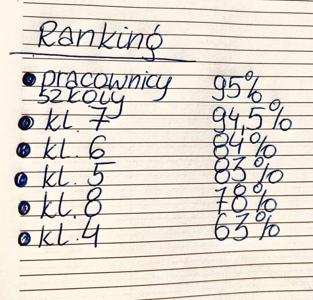 Ranking
pracownicy szkoły 95%
kl. 7 94,5%
kl. 6 84%
kl. 5 83%
kl. 8 78%
kl. 4 63%